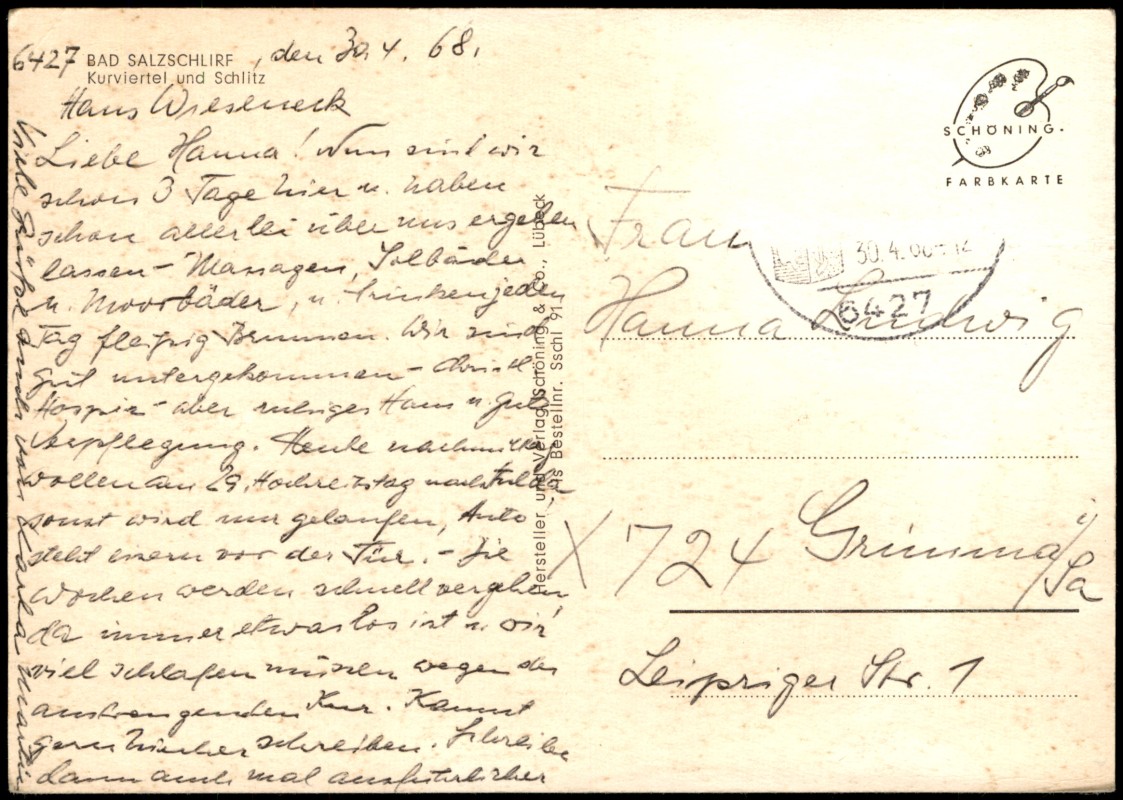 6427 BAD SALZSCHLIRF, den 30.4.68.
Kurviertel und Schlitz
Haus Wieseneck
Liebe Hanna! Nun sind wir
schon 3 Tage hier u. haben
schon allerlei über uns ergehen
lassen - Massagen, Solbäder
u. Moorbäder, u. trinken jeden
Tag fleißig Brunnen. Wir sind
gut untergekommen - christl
Hospiz - aber ruhiges Haus u. gute
Verpflegung. Heute nachmittag
wollen am 29. Hochzeitstag nach Fulda
sonst wird nur gelaufen, Auto
steht vor der Tür. - Die
Wochen werden schnell vergehen,
da immer etwas los ist u. wir
viel schlafen müssen wegen der
anstrengenden Kur. Kannst
gern hierher schreiben. Schreibe
dann auch mal ausführlicher
Viele Grüße auch von Martin
Hersteller und Verlag Schöning & Co., Lübeck
Bestellnr. Sschl 91
SCHÖNING
FARBKARTE
30.4.68
6427
Frau
Hanna Ludwig
X 724 Grimma i/Sa
Leipziger Str. 1